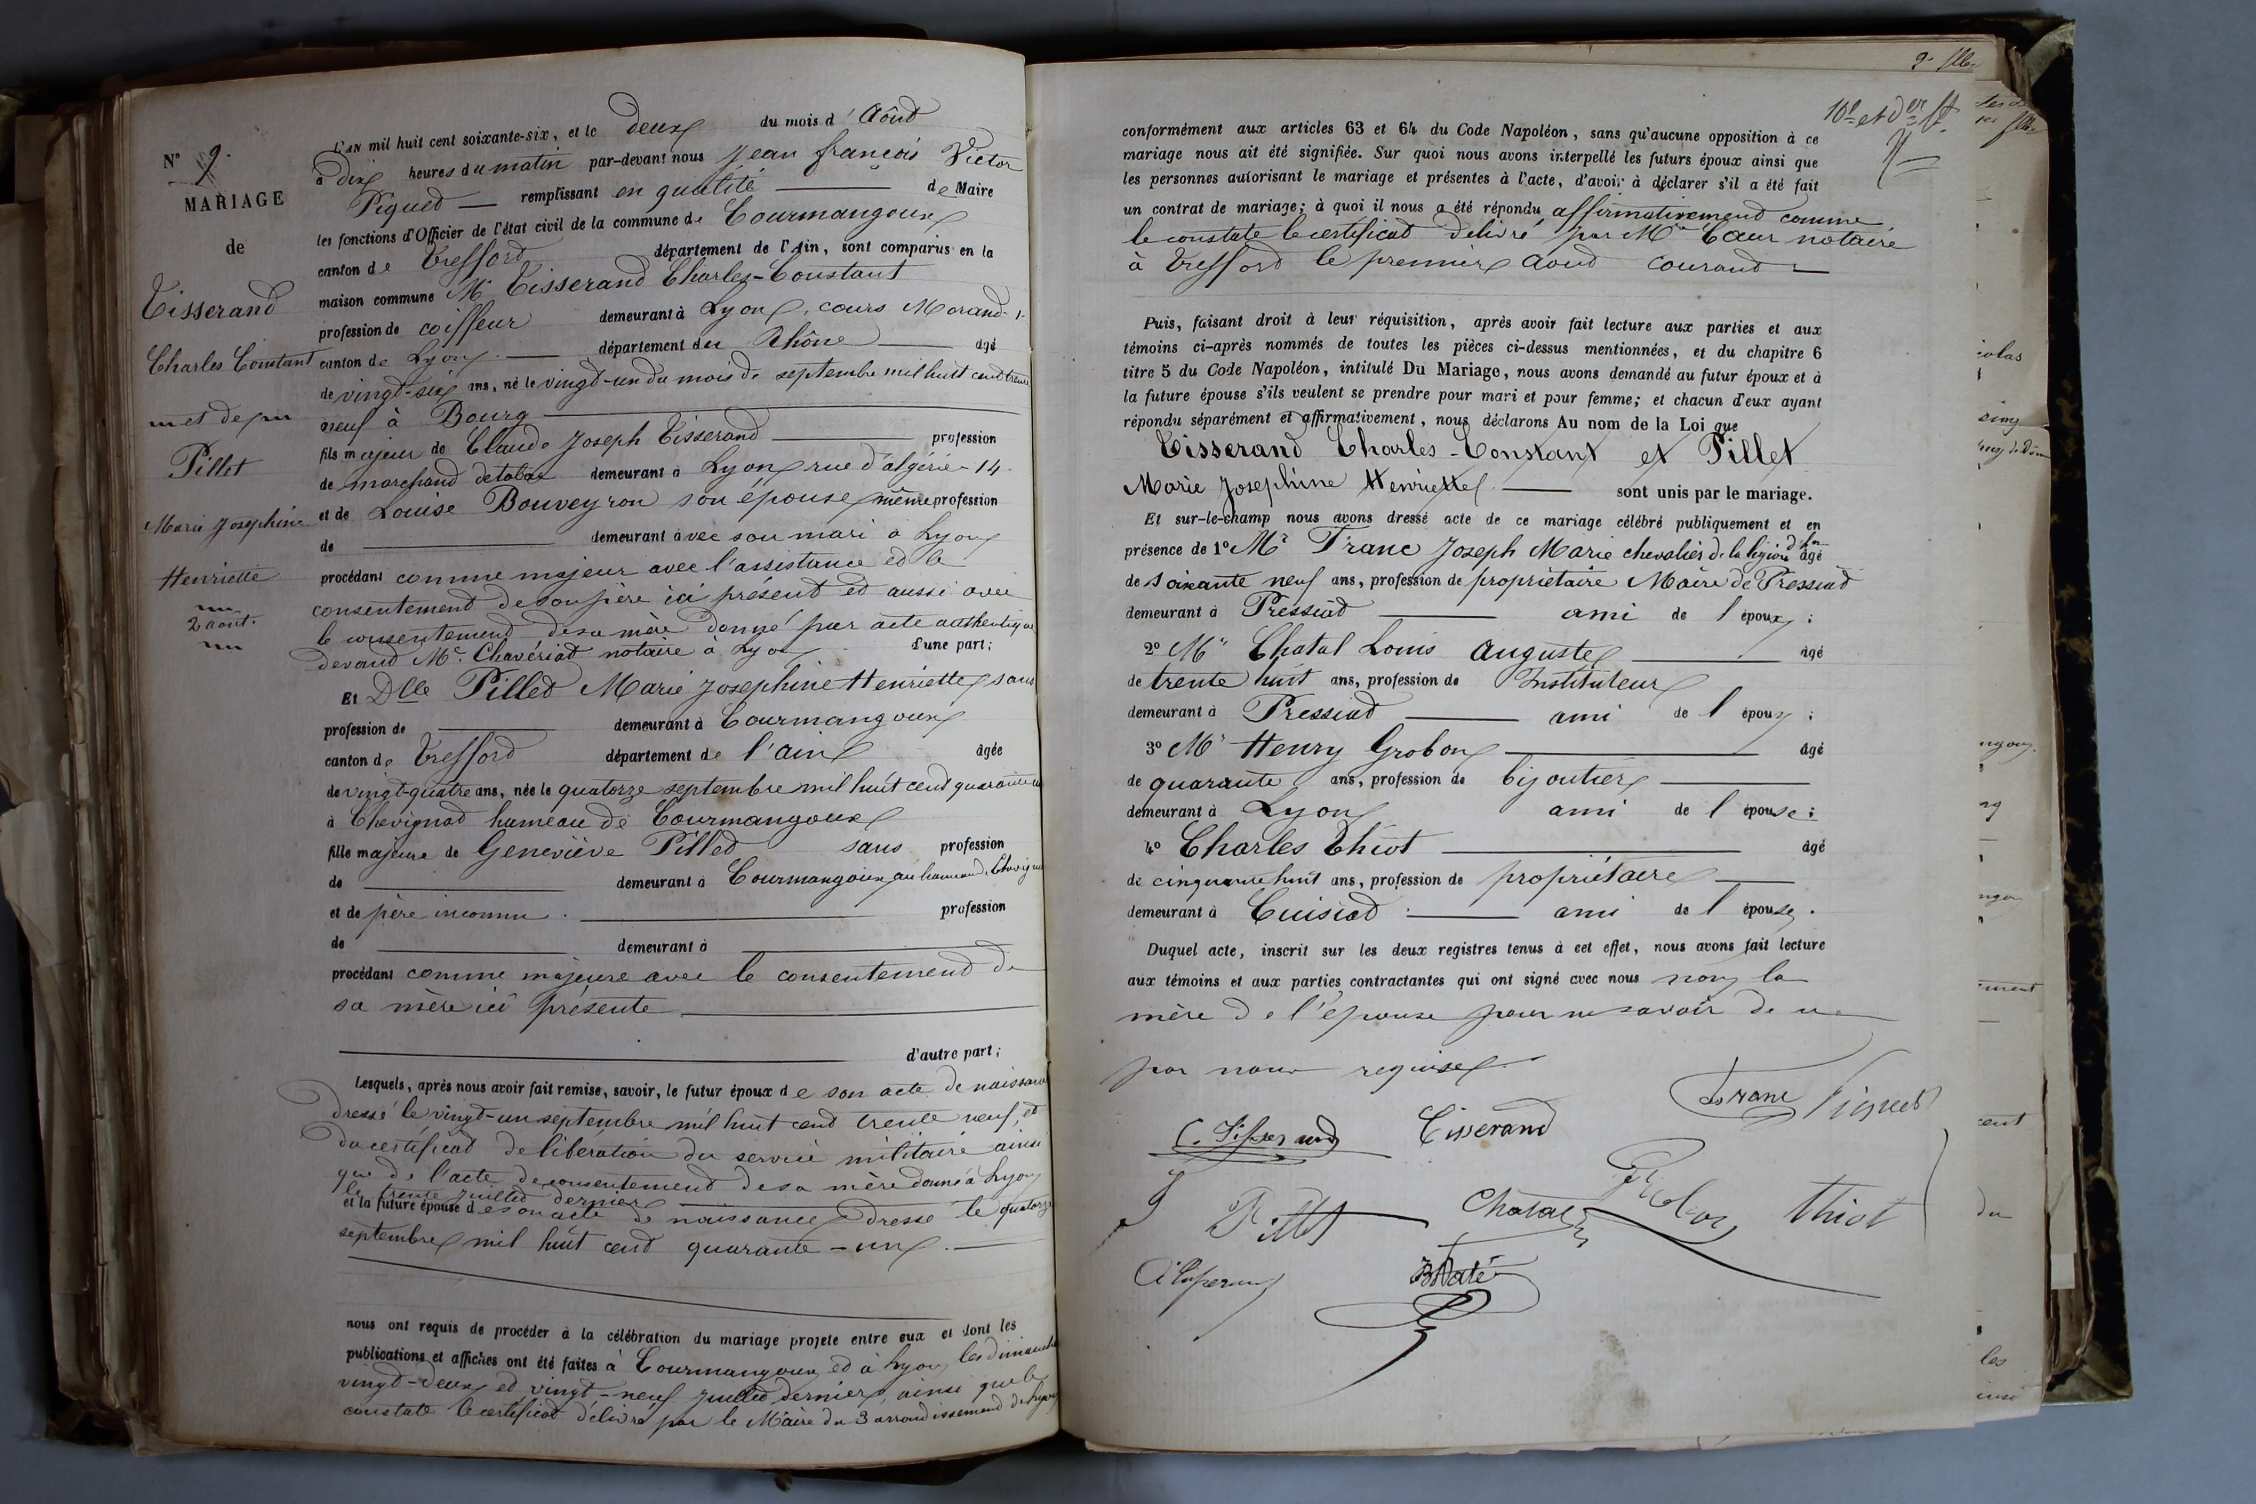 N° 9.
MARIAGE
de
Tisserand
Charles Constant
et de
Pillet
Marie Joséphine
Henriette
2 aout.
L'AN mil huit cent soixante-six, et le deux du mois d'Aôut
à dix heures du matin par-devant nous Jean françois Victor
Piquet — remplissant en qualité — de Maire
les fonctions d'Officier de l'état civil de la commune de Courmangoux
canton de Treffort département de l'Ain, sont comparus en la
maison commune Mr Tisserand Charles-Constant
profession de coiffeur demeurant à Lyon, cours Morand. 1.
canton de Lyon — département du Rhône — agé
de vingt-six ans, né le vingt-un du mois de septembre mil huit cent trente
neuf à Bourg —
fils majeur de Claude Joseph Tisserand — profession
de marchand de tabac demeurant à Lyon rue d'algérie - 14.
et de Louise Bouveyron son épouse, même profession
de — demeurant avec son mari à Lyon
procédant comme majeur avec l'assistance et le
consentement de son père ici présent et aussi avec
le consentement de sa mère donné par acte authentique
devant Me. Chavériat notaire à Lyon d'une part;
Et Dlle Pillet Marie Joséphine Henriette, sans
profession de — demeurant à Courmangoux
canton de Treffort département de l'ain agée
de vingt-quatre ans, née le quatorze septembre mil huit cent quarante un
à Chevignat hameau de Courmangoux
fille majeure de Geneviève Pillet sans profession
de — demeurant à Courmangoux au hameau de Chevignat
et de père inconnu. — profession
de — demeurant à —
procédant comme majeure avec le consentement de
sa mère ici présente —
— d'autre part;
Lesquels, après nous avoir fait remise, savoir, le futur époux de son acte de naissance
dressé le vingt-un septembre mil huit cent trente neuf, et
du certificat de libération du service militaire ainsi
que de l'acte de consentement de sa mère donné à Lyon
le trente juillet dernier —
et la future épouse de son acte de naissance dressé le quatorze
septembre mil huit cent quarante-un. —
nous ont requis de procéder à la célébration du mariage projeté entre eux et dont les
publications et affiches ont été faites à Courmangoux et à Lyon les dimanches
vingt-deux et vingt-neuf juillet dernier, ainsi que le
constate le certificat délivré par le Maire du 3 arrondissement de Lyon
10e et der ft.
conformément aux articles 63 et 64 du Code Napoléon, sans qu'aucune opposition à ce
mariage nous ait été signifiée. Sur quoi nous avons interpellé les futurs époux ainsi que
les personnes autorisant le mariage et présentes à l'acte, d'avoir à déclarer s'il a été fait
un contrat de mariage; à quoi il nous a été répondu affirmativement comme
le constate le certificat délivré par Me Cœur notaire
à Treffort le premier Août courant —
Puis, faisant droit à leur réquisition, après avoir fait lecture aux parties et aux
témoins ci-après nommés de toutes les pièces ci-dessus mentionnées, et du chapitre 6
titre 5 du Code Napoléon, intitulé Du Mariage, nous avons demandé au futur époux et à
la future épouse s'ils veulent se prendre pour mari et pour femme; et chacun d'eux ayant
répondu séparément et affirmativement, nous déclarons Au nom de la Loi que
Tisserand Charles-Constant et Pillet
Marie Joséphine Henriette — sont unis par le mariage.
Et sur-le-champ nous avons dressé acte de ce mariage célébré publiquement et en
présence de 1° Mr Franc Joseph Marie chevalier de la légion d'hr agé
de soixante neuf ans, profession de propriétaire Maire de Pressiat
demeurant à Pressiat — ami de l'époux;
2° Mr Chatal Louis Auguste — agé
de trente huit ans, profession de Instituteur
demeurant à Pressiat — ami de l'époux;
3° Mr Henry Grobon — agé
de quarante ans, profession de bijoutier —
demeurant à Lyon ami de l'épouse;
4° Charles Thiot — agé
de cinquante huit ans, profession de propriétaire —
demeurant à Cuisiat. — ami de l'épouse.
Duquel acte, inscrit sur les deux registres tenus à cet effet, nous avons fait lecture
aux témoins et aux parties contractantes qui ont signé avec nous non la
mère de l'épouse pour ne savoir de ce
par nous requise.
Franc Piquet
C. Tisserand Tisserand
J Pillet Chatal Grobon Thiot